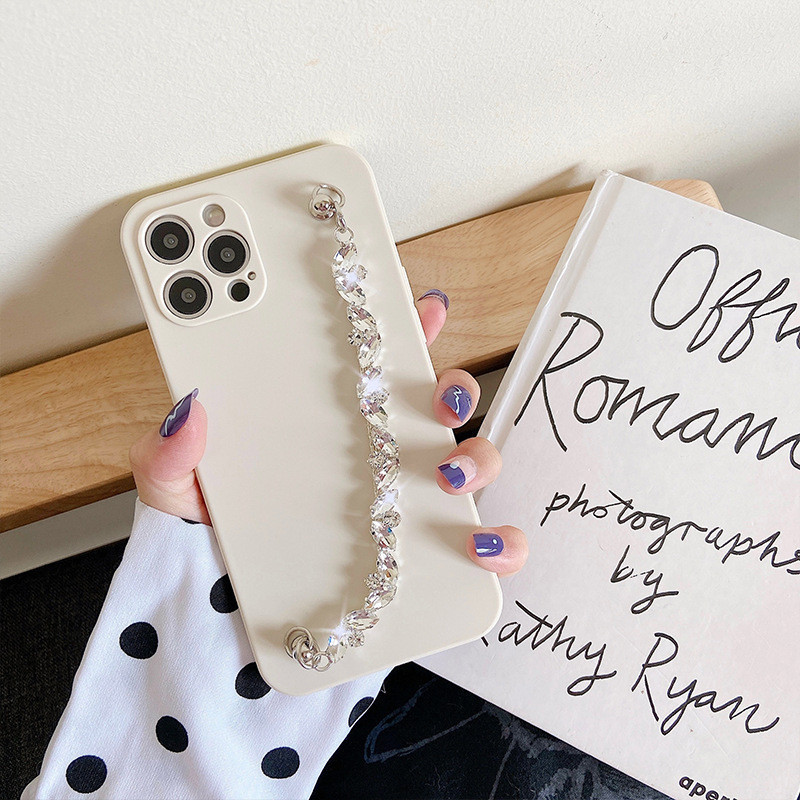 Offi
Roman
photographs
by
Kathy Ryan
aper